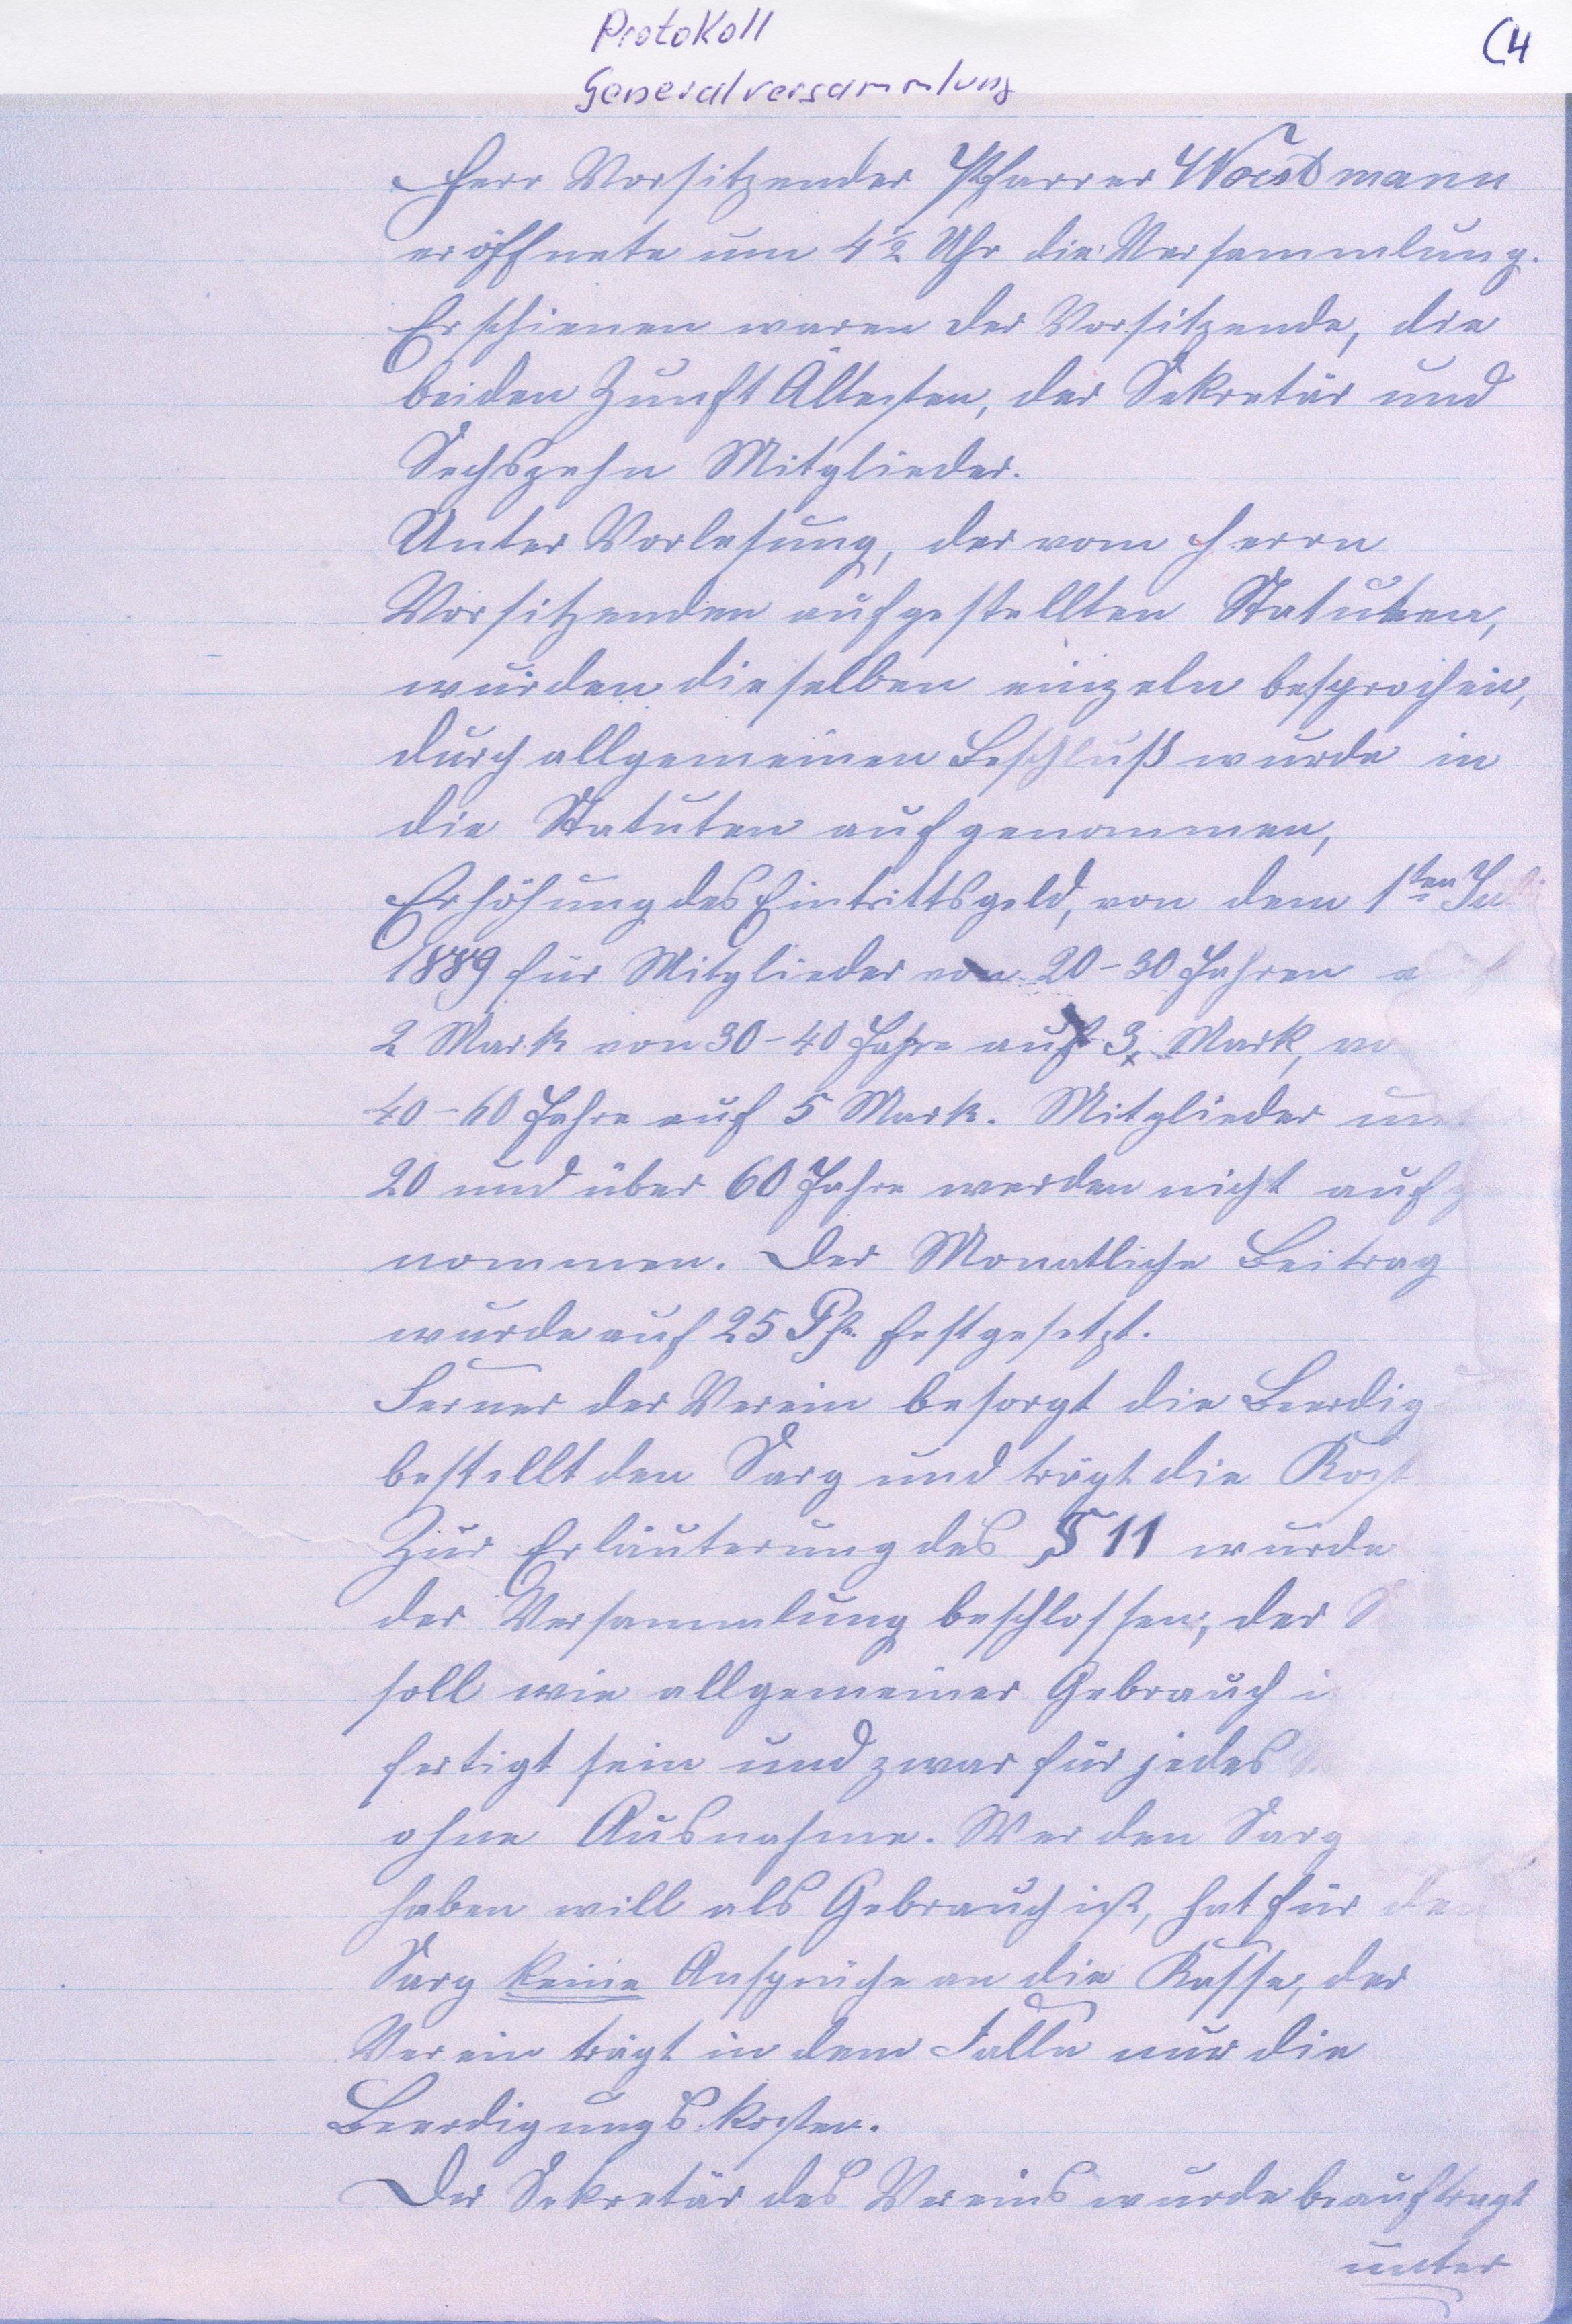 Protokoll
(4
Generalversammlung
Herr Vorsitzender Pfarrer Worstmann
eröffnete um 4½ Uhr die Versammlung.
Erschienen waren der Vorsitzende, die
beiden Zunft Ältesten, der Sekretär und
Sechszehn Mitglieder.
Unter Vorlesung, der vom Herrn
Vorsitzenden aufgestellten Statuten,
wurden dieselben einzeln besprochen,
durch allgemeinen Beschluß wurde in
die Statuten aufgenommen,
Erhöhung des Eintrittsgeld, von dem 1ten Juli
1889 für Mitglieder von 20-30 Jahren
2 Mark von 30-40 Jahre auf 3 Mark, vo
40-60 Jahre auf 5 Mark. Mitglieder un
20 und über 60 Jahre werden nicht aufge
nommen. Der Monatliche Beitrag
wurde auf 25 Pf. festgesetzt.
Ferner der Verein besorgt die Beerdig
bestellt den Sarg und trägt die Kost
Zur Erläuterung des § 11 wurde
der Versammlung beschlossen, der S
soll wie allgemeiner Gebrauch i
fertigt sein und zwar für jedes
ohne Ausnahme. Wer den Sarg
haben will als Gebrauch ist, hat für den
Sarg keine Ansprüche an die Kasse, der
Verein trägt in dem Falle nur die
Beerdigungskosten.
Der Sekretär des Vereins wurde beauftragt
unter